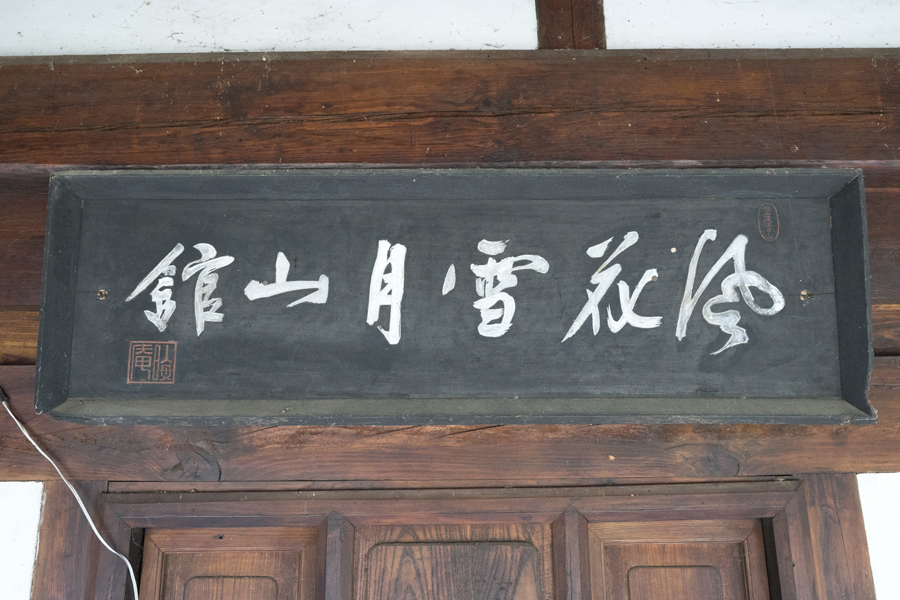 風花雪月山館